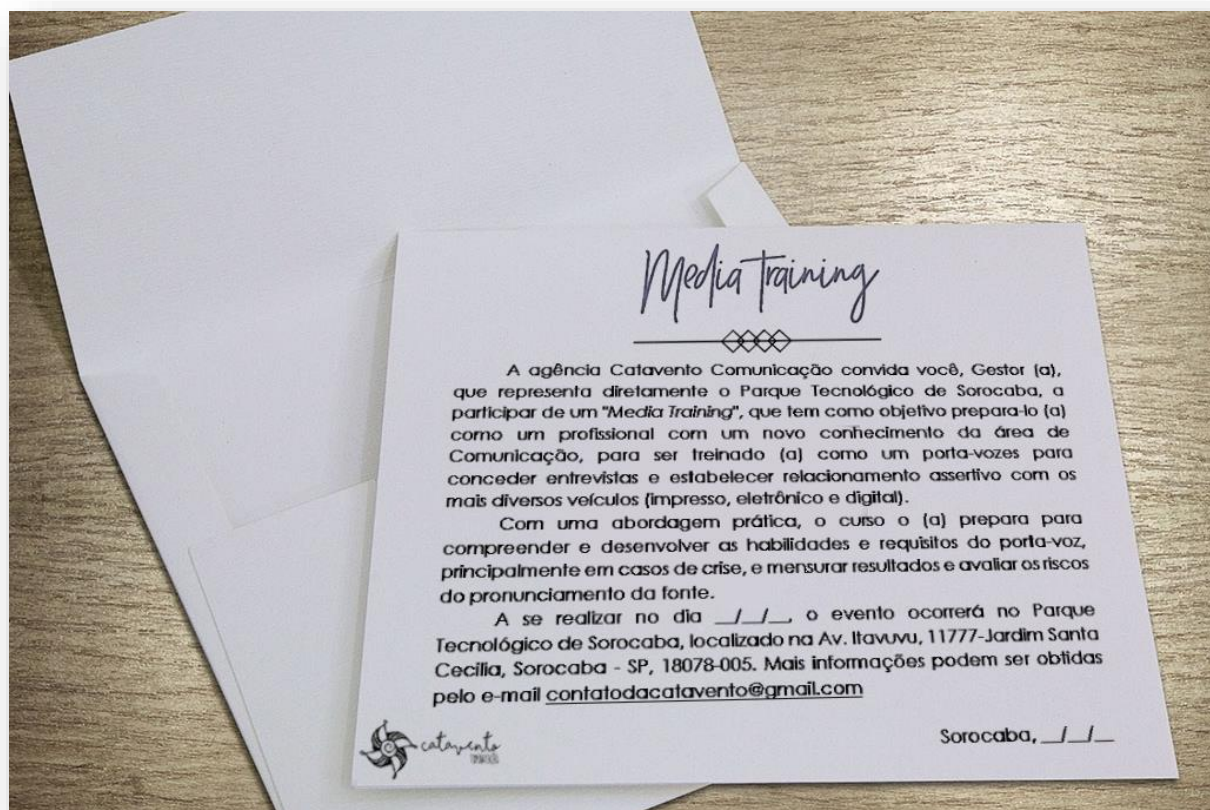 Media Training
A agência Catavento Comunicação convida você, Gestor (a),
que representa diretamente o Parque Tecnológico de Sorocaba, a
participar de um "Media Training", que tem como objetivo prepara-lo (a)
como um profissional com um novo conhecimento da área de
Comunicação, para ser treinado (a) como um porta-vozes para
conceder entrevistas e estabelecer relacionamento assertivo com os
mais diversos veículos (impresso, eletrônico e digital).
Com uma abordagem prática, o curso o (a) prepara para
compreender e desenvolver as habilidades e requisitos do porta-voz,
principalmente em casos de crise, e mensurar resultados e avaliar os riscos
do pronunciamento da fonte.
A se realizar no dia __/__/__, o evento ocorrerá no Parque
Tecnológico de Sorocaba, localizado na Av. Itavuvu, 11777-Jardim Santa
Cecília, Sorocaba - SP, 18078-005. Mais informações podem ser obtidas
pelo e-mail contatodacatavento@gmail.com
Sorocaba, __/__/__
catavento